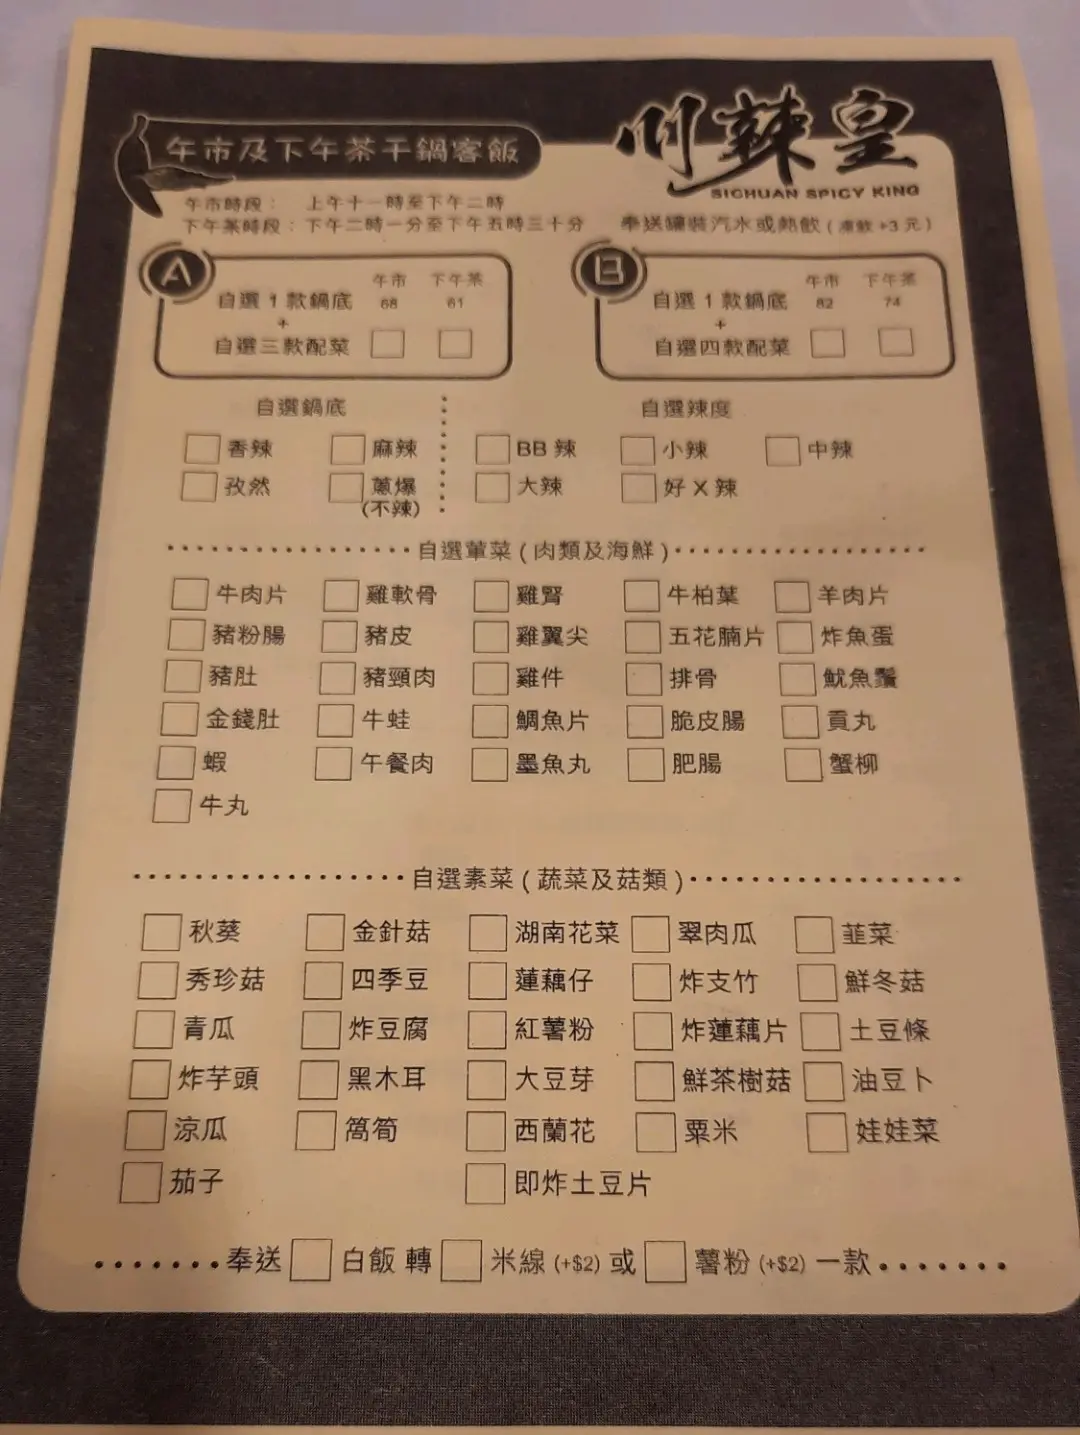 川辣皇
SICHUAN SPICY KING
午市及下午茶干鍋客飯
午市時段： 上午十一時至下午二時
下午茶時段：下午二時一分至下午五時三十分
奉送罐裝汽水或熱飲 ( 凍飲 +3 元 )
A
午市 下午茶
自選 1 款鍋底 68 61
+
自選三款配菜
B
午市 下午茶
自選 1 款鍋底 82 74
+
自選四款配菜
自選鍋底
香辣 麻辣
孜然 蔥爆
(不辣)
自選辣度
BB 辣 小辣 中辣
大辣 好 X 辣
自選葷菜 ( 肉類及海鮮 )
牛肉片 雞軟骨 雞腎 牛柏葉 羊肉片
豬粉腸 豬皮 雞翼尖 五花腩片 炸魚蛋
豬肚 豬頸肉 雞件 排骨 魷魚鬚
金錢肚 牛蛙 鯛魚片 脆皮腸 貢丸
蝦 午餐肉 墨魚丸 肥腸 蟹柳
牛丸
自選素菜 ( 蔬菜及菇類 )
秋葵 金針菇 湖南花菜 翠肉瓜 韮菜
秀珍菇 四季豆 蓮藕仔 炸支竹 鮮冬菇
青瓜 炸豆腐 紅薯粉 炸蓮藕片 土豆條
炸芋頭 黑木耳 大豆芽 鮮茶樹菇 油豆卜
涼瓜 萵筍 西蘭花 粟米 娃娃菜
茄子 即炸土豆片
奉送 白飯 轉 米線 (+$2) 或 薯粉 (+$2) 一款